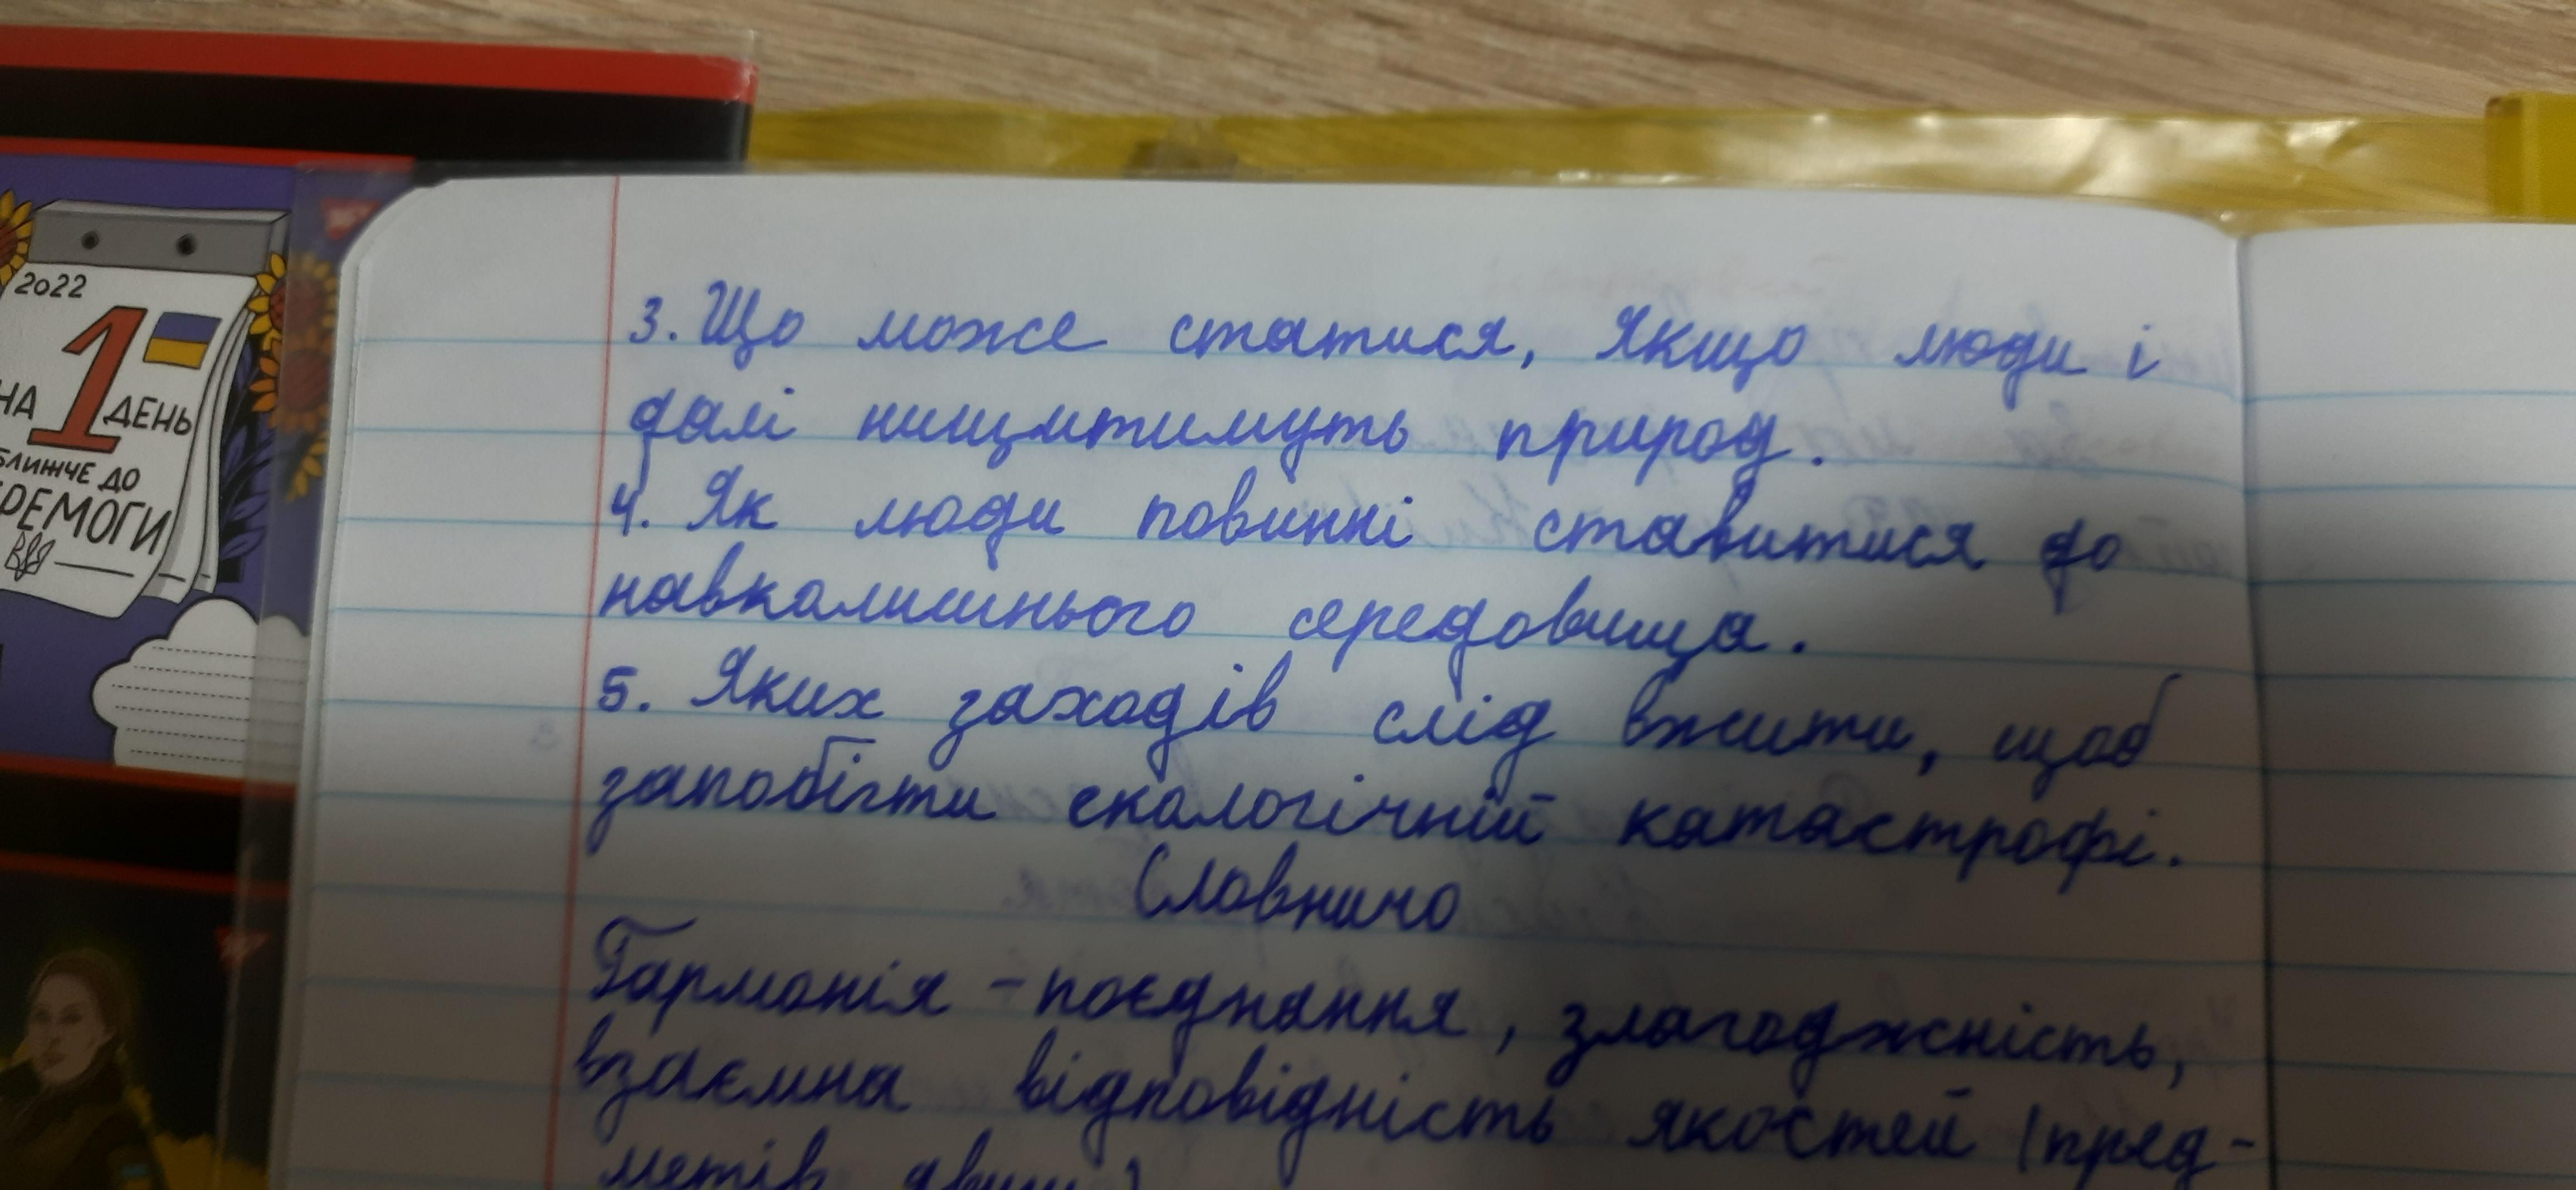 2022
НА 1 ДЕНЬ
БЛИЖЧЕ ДО
ЕРЕМОГИ
3. Що може статися, якщо люди і
далі нищитимуть природ.
4. Як люди повинні ставитися до
навколишнього середовища.
5. Яких заходів слід вжити, щоб
запобігти екологічній катастрофі.
Словничо
Гармонія - поєднання, злагодженість,
взаємна відповідність якостей (пред-
метів, явищ)